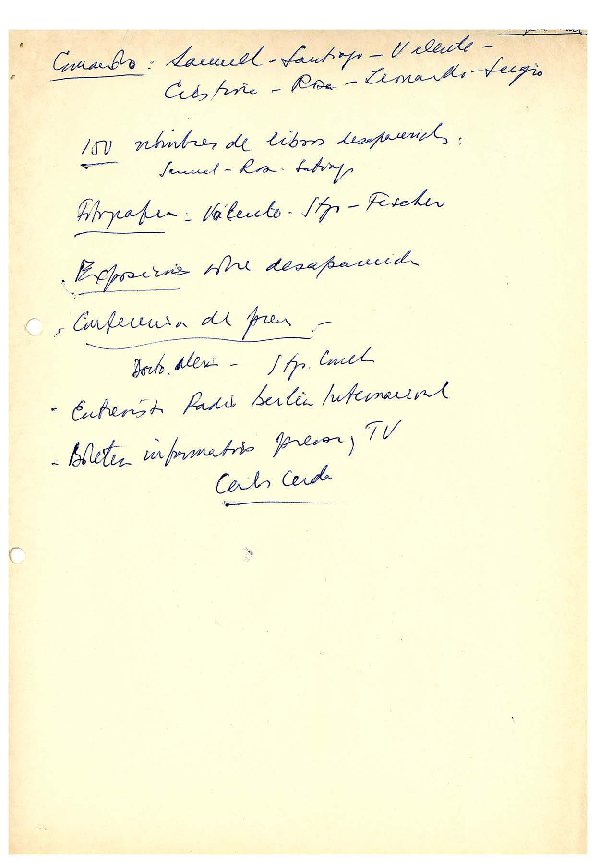 Comando: Samuel - Santiago - Valente -
Cristina - Rosa - Leonardo - Sergio
100 nombres de libros desaparecids:
Samuel - Rosa - Santiago
Fotografia: Valente - Stgo - Fischer
Exposicion sobre desaparecido
Conferencia de prensa -
Docto. - Stgo.
- Entrevista Radio Berlin Internacional
- Boletin informativo prensa y TV
Carlos Cerda